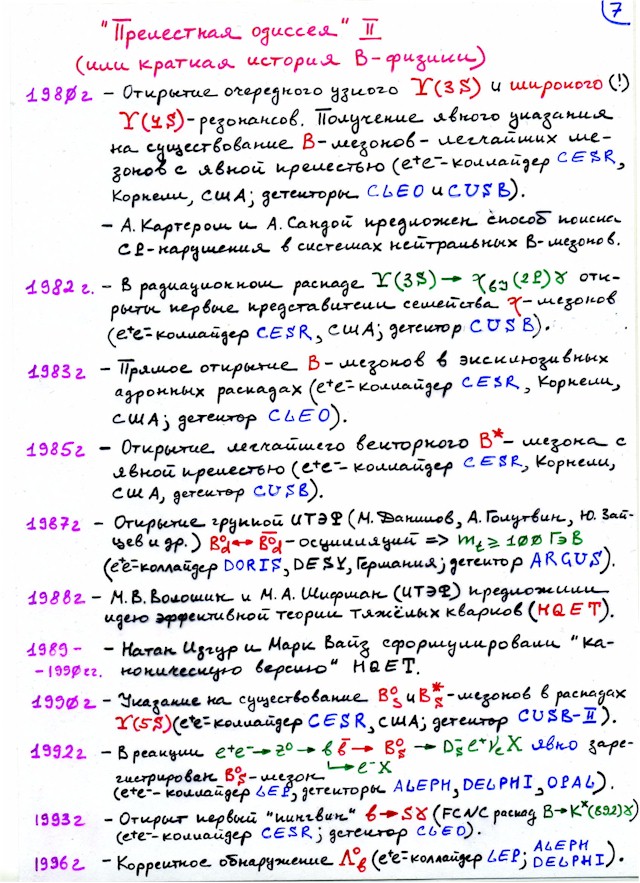 7
"Прелестная одиссея" II
(или краткая история B-физики)
1980г - Открытие очередного узкого ϒ(3S) и широкого (!)
ϒ(4S)-резонансов. Получение явного указания
на существование B-мезонов - легчайших ме-
зонов с явной прелестью (e⁺e⁻-коллайдер CESR,
Корнелл, США; детекторы CLEO и CUSB).
- А. Картером и А. Сандой предложен способ поиска
CP-нарушения в системах нейтральных B-мезонов.
1982 г. - В радиационном распаде ϒ(3S) → χ_bJ(2P)γ отк-
рыты первые представители семейства χ-мезонов
(e⁺e⁻-коллайдер CESR, США; детектор CUSB).
1983г - Прямое открытие B-мезонов в эксклюзивных
адронных распадах (e⁺e⁻-коллайдер CESR, Корнелл,
США; детектор CLEO).
1985г - Открытие легчайшего векторного B*-мезона с
явной прелестью (e⁺e⁻-коллайдер CESR, Корнелл,
США, детектор CUSB).
1987г - Открытие группой ИТЭФ (М. Данилов, А. Голутвин, Ю. Зай-
цев и др.) B⁰_d ↔ B̄⁰_d-осцилляций => m_t ≥ 100 ГэВ
(e⁺e⁻-коллайдер DORIS, DESY, Германия; детектор ARGUS).
1988г - М.В. Волошин и М.А. Шифман (ИТЭФ) предложили
идею эффективной теории тяжёлых кварков (HQET).
1989- - Натан Изгур и Марк Вайз сформулировали "ка-
-1990гг. ноническую версию" HQET.
1990г - Указание на существование B⁰_s и B*_s-мезонов в распадах
ϒ(5S) (e⁺e⁻-коллайдер CESR, США; детектор CUSB-II).
1992г - В реакции e⁺e⁻ → Z⁰ → b b̄ → B⁰_s → D⁻_s e⁺ν_e X явно заре-
↳ e⁻X
гистрирован B⁰_s-мезон
(e⁺e⁻-коллайдер LEP, детекторы ALEPH, DELPHI, OPAL).
1993г - Открыт первый "пингвин" b → sγ (FCNC распад B→K*(892)γ)
(e⁺e⁻-коллайдер CESR; детектор CLEO).
1996г - Корректное обнаружение Λ⁰_b (e⁺e⁻-коллайдер LEP; ALEPH
DELPHI).